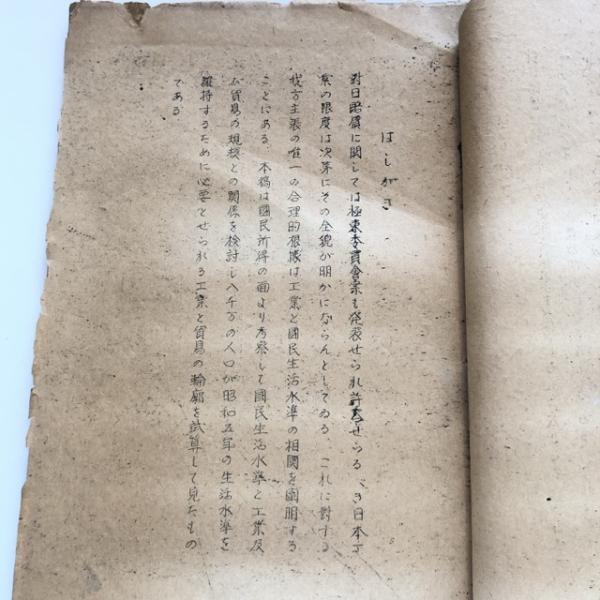 はしがき
対日賠償に関しては極東委員會案も発表せられ許容せらるべき日本工
業の限度は次第にその全貌が明かにならんとしてゐる、これに対する
我方主張の唯一の合理的根據は工業と國民生活水準の相関を闡明する
ことにある、本稿は國民所得の面より考察して國民生活水準と工業及
び貿易の規模との関係を検討し八千万の人口が昭和五年の生活水準を
維持するために必要とせられる工業と貿易の輪廓を試算して見たもの
である